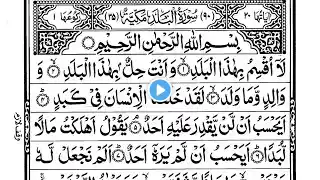 اٰیاتہا ۲۰ (۹۰) سُوْرَةُ الْبَلَدِ مَكِّيَّةٌ (۳۵) رکوعہا ۱
بِسْمِ اللّٰهِ الرَّحْمٰنِ الرَّحِيْمِ
لَاۤ اُقْسِمُ بِهٰذَا الْبَلَدِ ۙ وَاَنْتَ حِلٌّۢ بِهٰذَا الْبَلَدِ ۙ وَ
وَالِدٍ وَّمَا وَلَدَ ۙ لَقَدْ خَلَقْنَا الْاِنْسَانَ فِيْ كَبَدٍ ؕ
اَيَحْسَبُ اَنْ لَّنْ يَّقْدِرَ عَلَيْهِ اَحَدٌ ۘ يَقُوْلُ اَهْلَكْتُ مَالًا
لُّبَدًا ؕ اَيَحْسَبُ اَنْ لَّمْ يَرَهٗۤ اَحَدٌ ؕ اَلَمْ نَجْعَلْ لَّهٗ